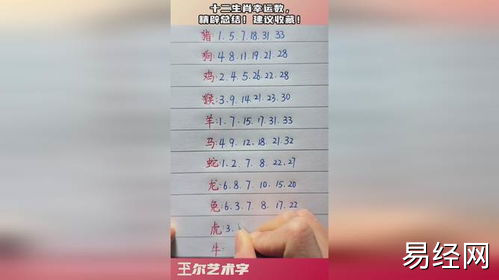 十二生肖幸运数,
精辟总结!建议收藏!
猪:1.5.7.18.31.33
狗:4.8.11.19.21.28
鸡:2.4.5.26.22.28
猴:3.9.14.21.23.30
羊:1.7.15.17.31.33
马:4.9.12.18.21.32
蛇:1.2.7.8.22.27
龙:6.8.7.10.15.20
兔:6.3.7.8.17.22
虎:3.
牛
王尔艺术字
易经网